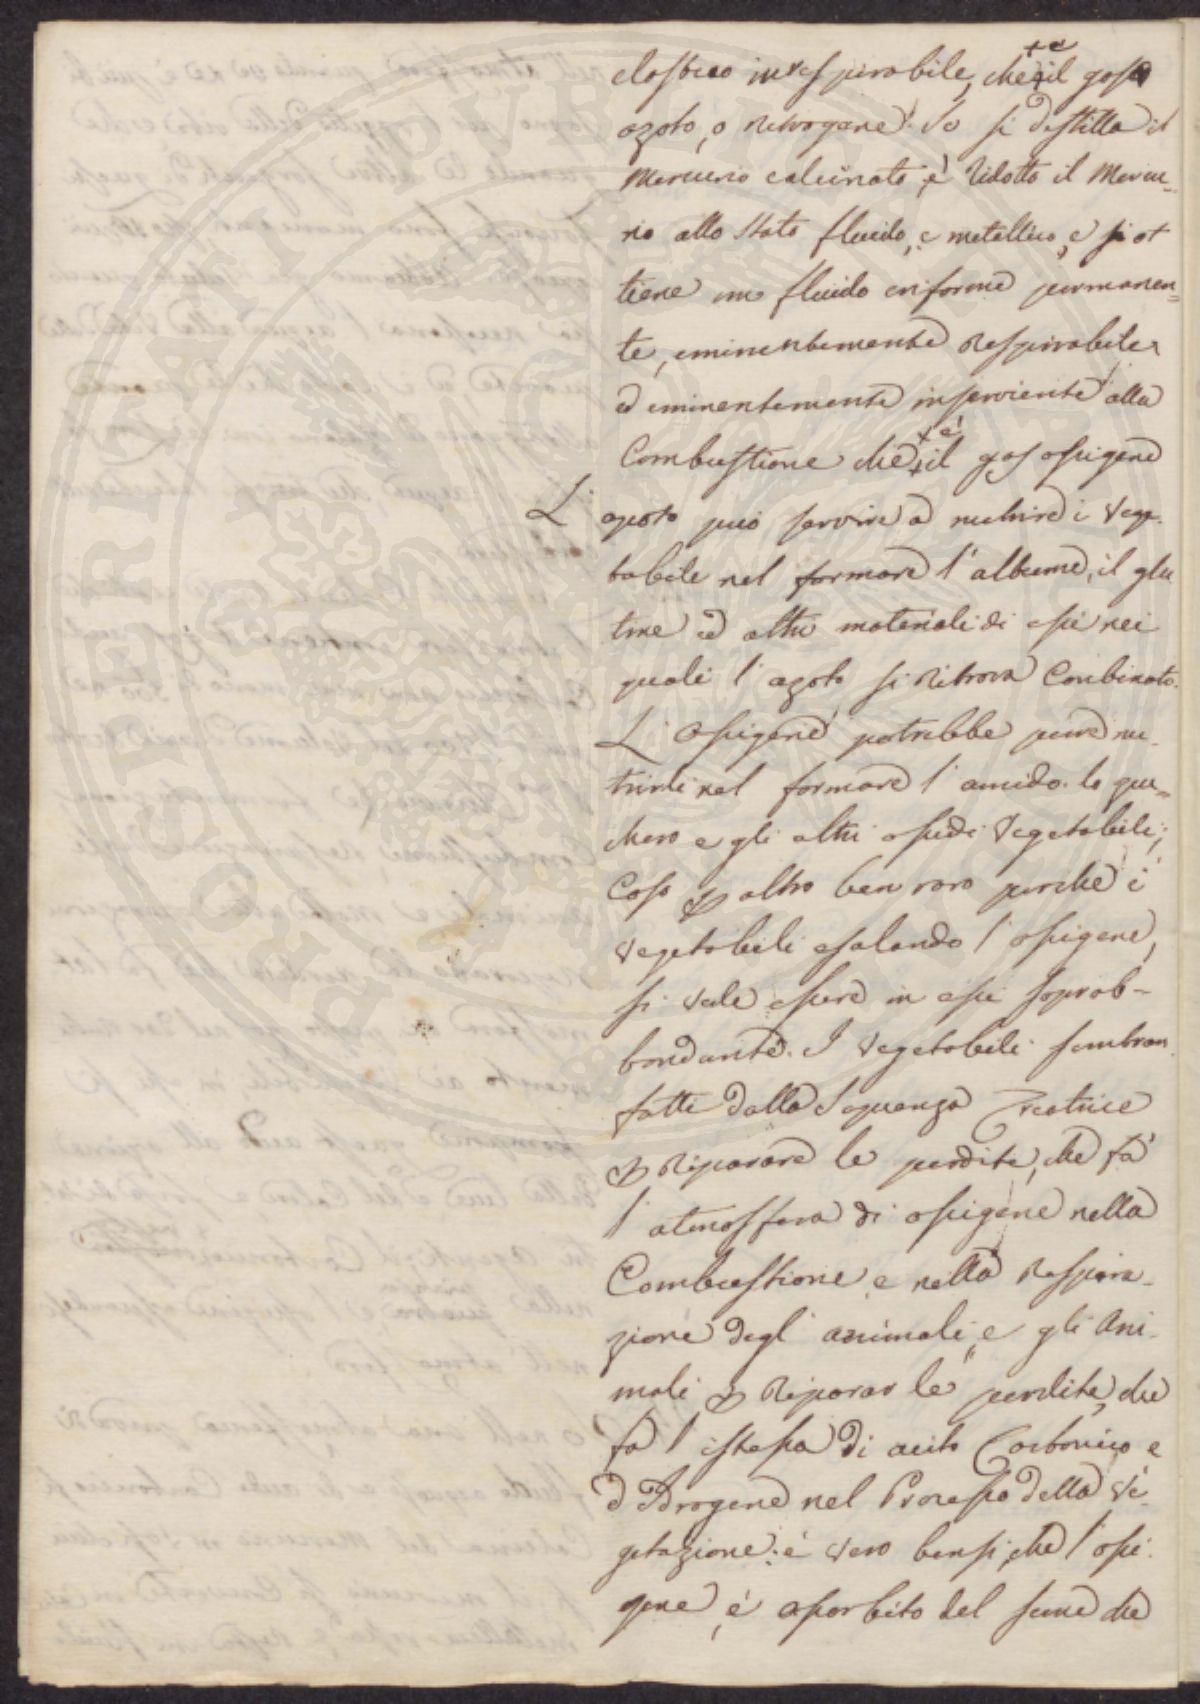 elastico irrespirabile, che è il gas
azoto, o nitrogene. Se si distilla il
Mercurio calcinato, è ridotto il Mercu=
rio allo stato fluido, e metallico, e si ot
tiene un fluido eriforme permanen=
te, eminentemente respirabile,
ed eminentemente inserviente alla
Combustione che è il gas ossigene
L'azoto può servire a nutrire i vege-
tabile nel formare l'albume, il glu
tine ed altri materiali di essi nei
quali l'azoto si ritrova Conbinato.
L'ossigene potrebbe pure nu-
trirli nel formare l'amido. lo zuc=
chero e gli altri ossidi vegetabili;
Caso altro ben raro perchè i
vegetabili esalando l'ossigene,
si vede essere in essi soprab-
bondante. I vegetabili sembran
fatti dalla Sapienza Creatrice
riparare le perdite, che fà
l'atmosfera di ossigene nella
Combustione e nella respira-
zione degl'animali, e gli ani-
mali riparar le perdite, che
fa l'istessa di acido Carbonico e
d'Idrogene nel Processo della ve-
getazione: è vero bensì, che l'ossi-
gene, è assorbito del seme che